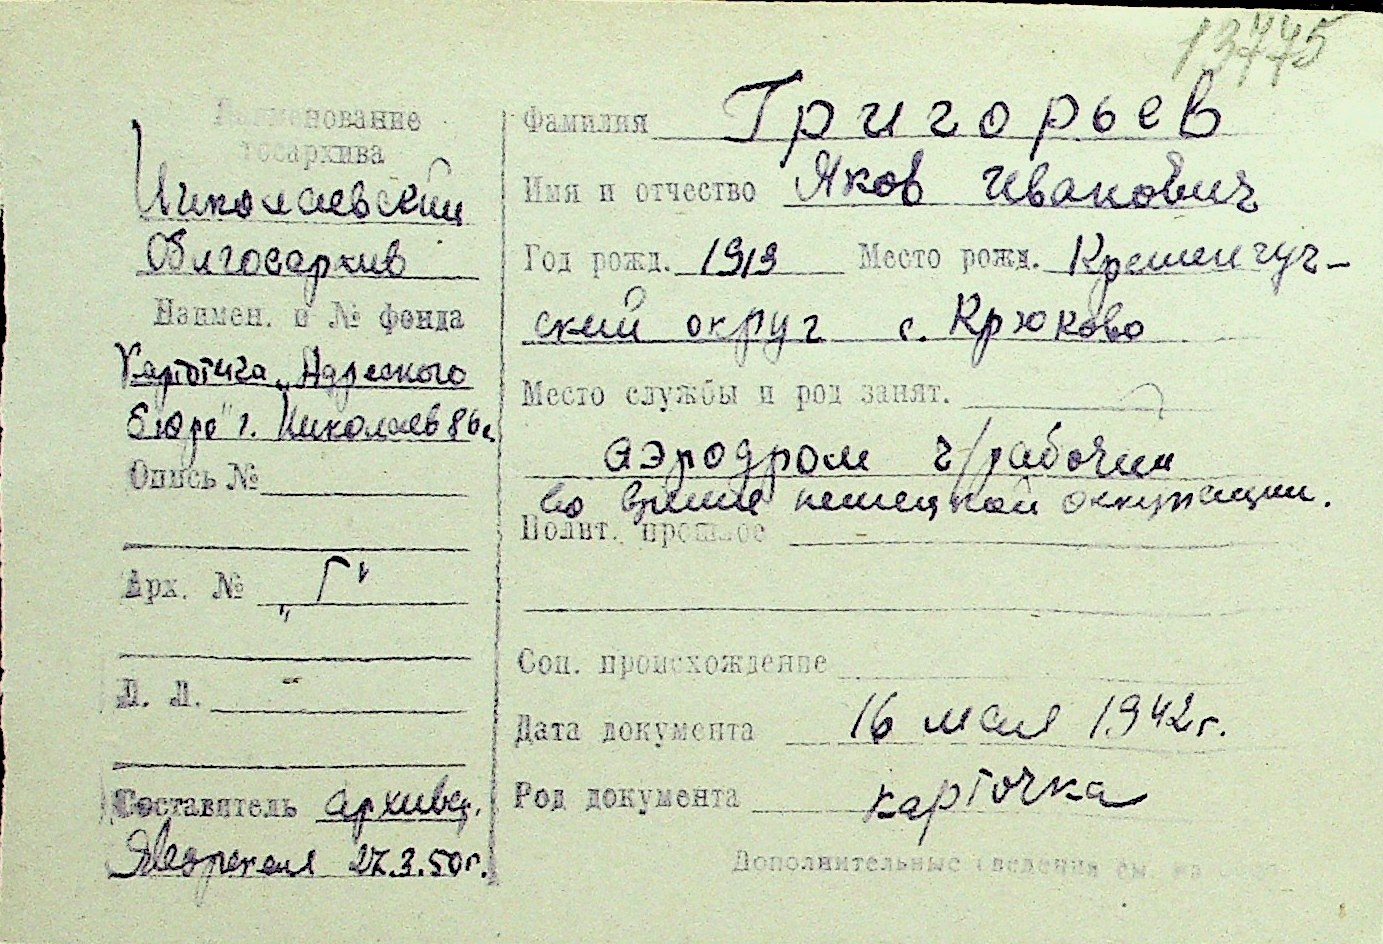 13775
Наименование
госархива
Николаевский
Облгосархив
Наимен. и № фонда
Картотека „Адресного
бюро" г. Николаев
Опись №
Арх. № „Г"
Л. Л. -
Составитель архивар.
Яворская 27.3.50г.
Фамилия Григорьев
Имя и отчество Яков Иванович
Год рожд. 1919 Место рожд. Кременчуг-
ский округ с. Крюково
Место службы и род занят.
аэродром ч/рабочий
во время немецкой оккупации.
Полит. прошлое -
Соц. происхождение
Дата документа 16 мая 1942г.
Род документа карточка
Дополнительные сведения